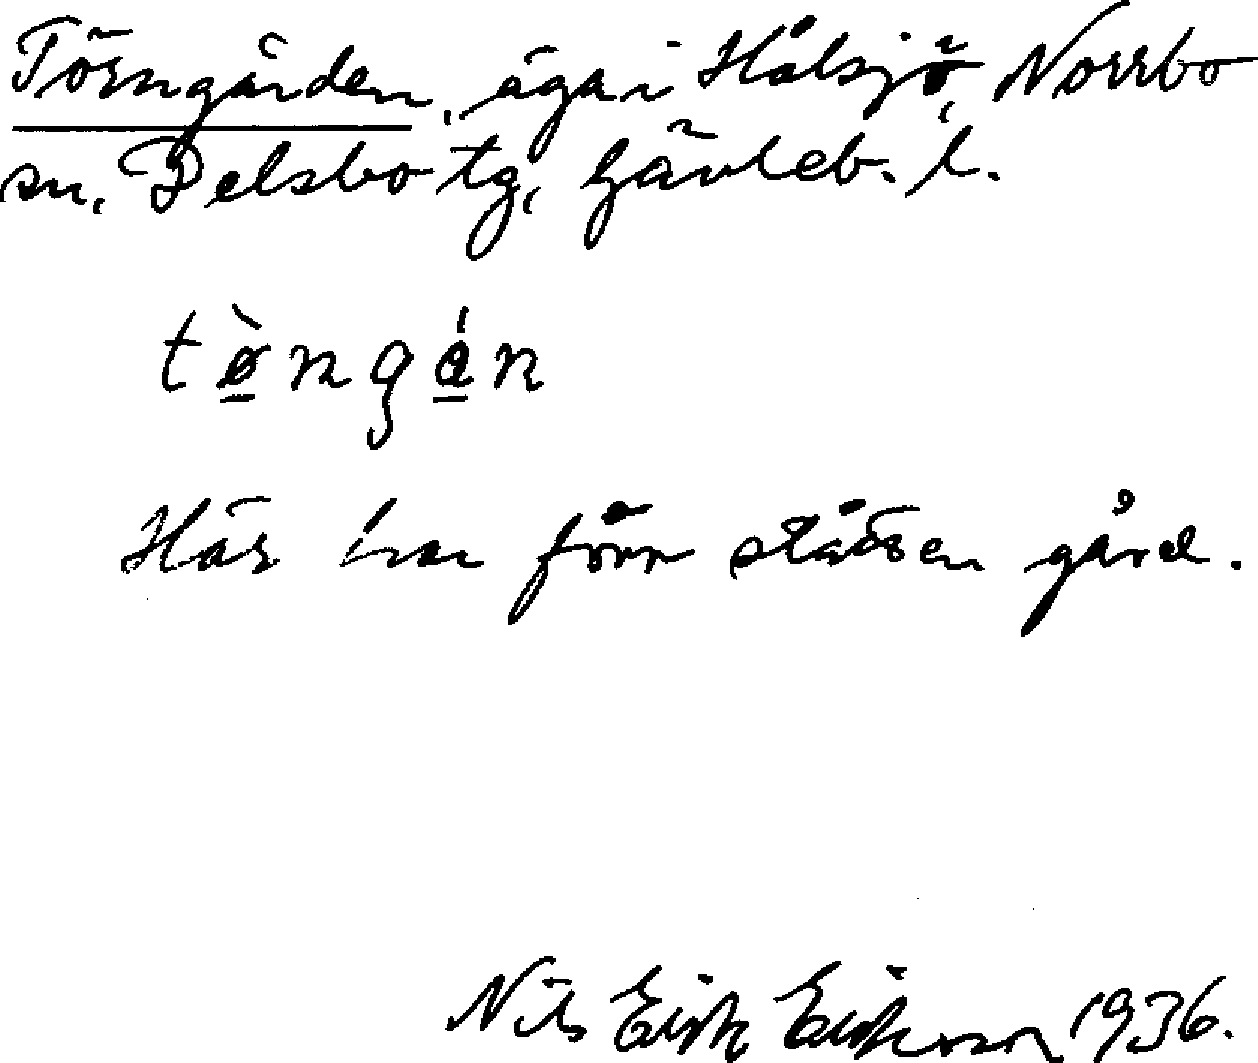 Törngården, äga i Hålsjö, Norrbo
sn, Delsbo tg, Gävleb. l.
tø̱̀ngá̱n
Här har förr stått en gård.
Nils Erik Eriksson 1936.